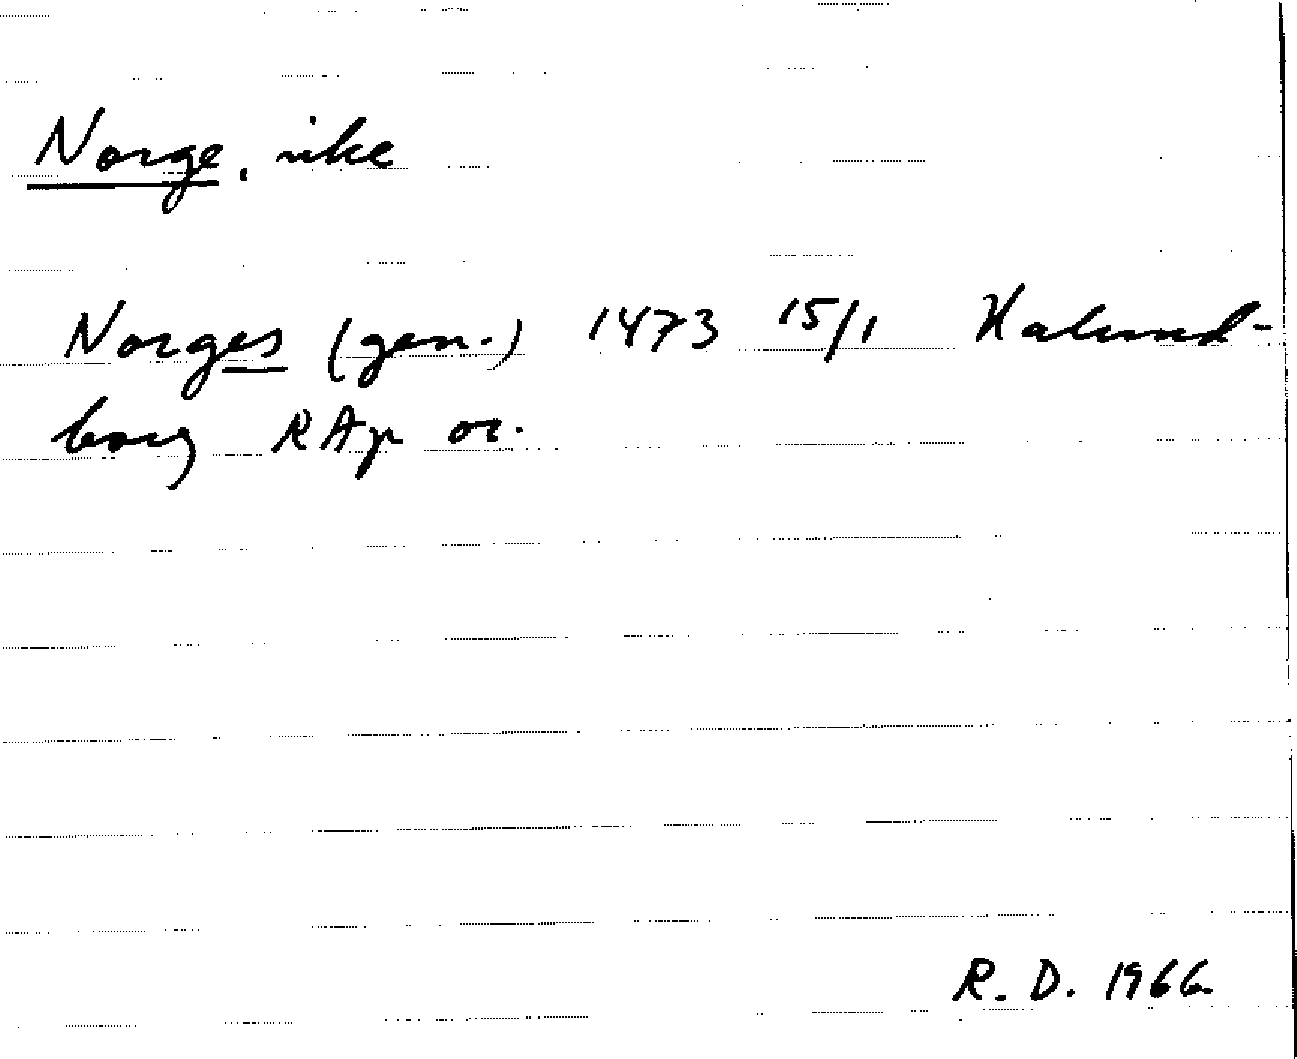 Norge, rike
Norges (gen.) 1473 15/1 Kalund-
borg RAp or.
R. D. 1966